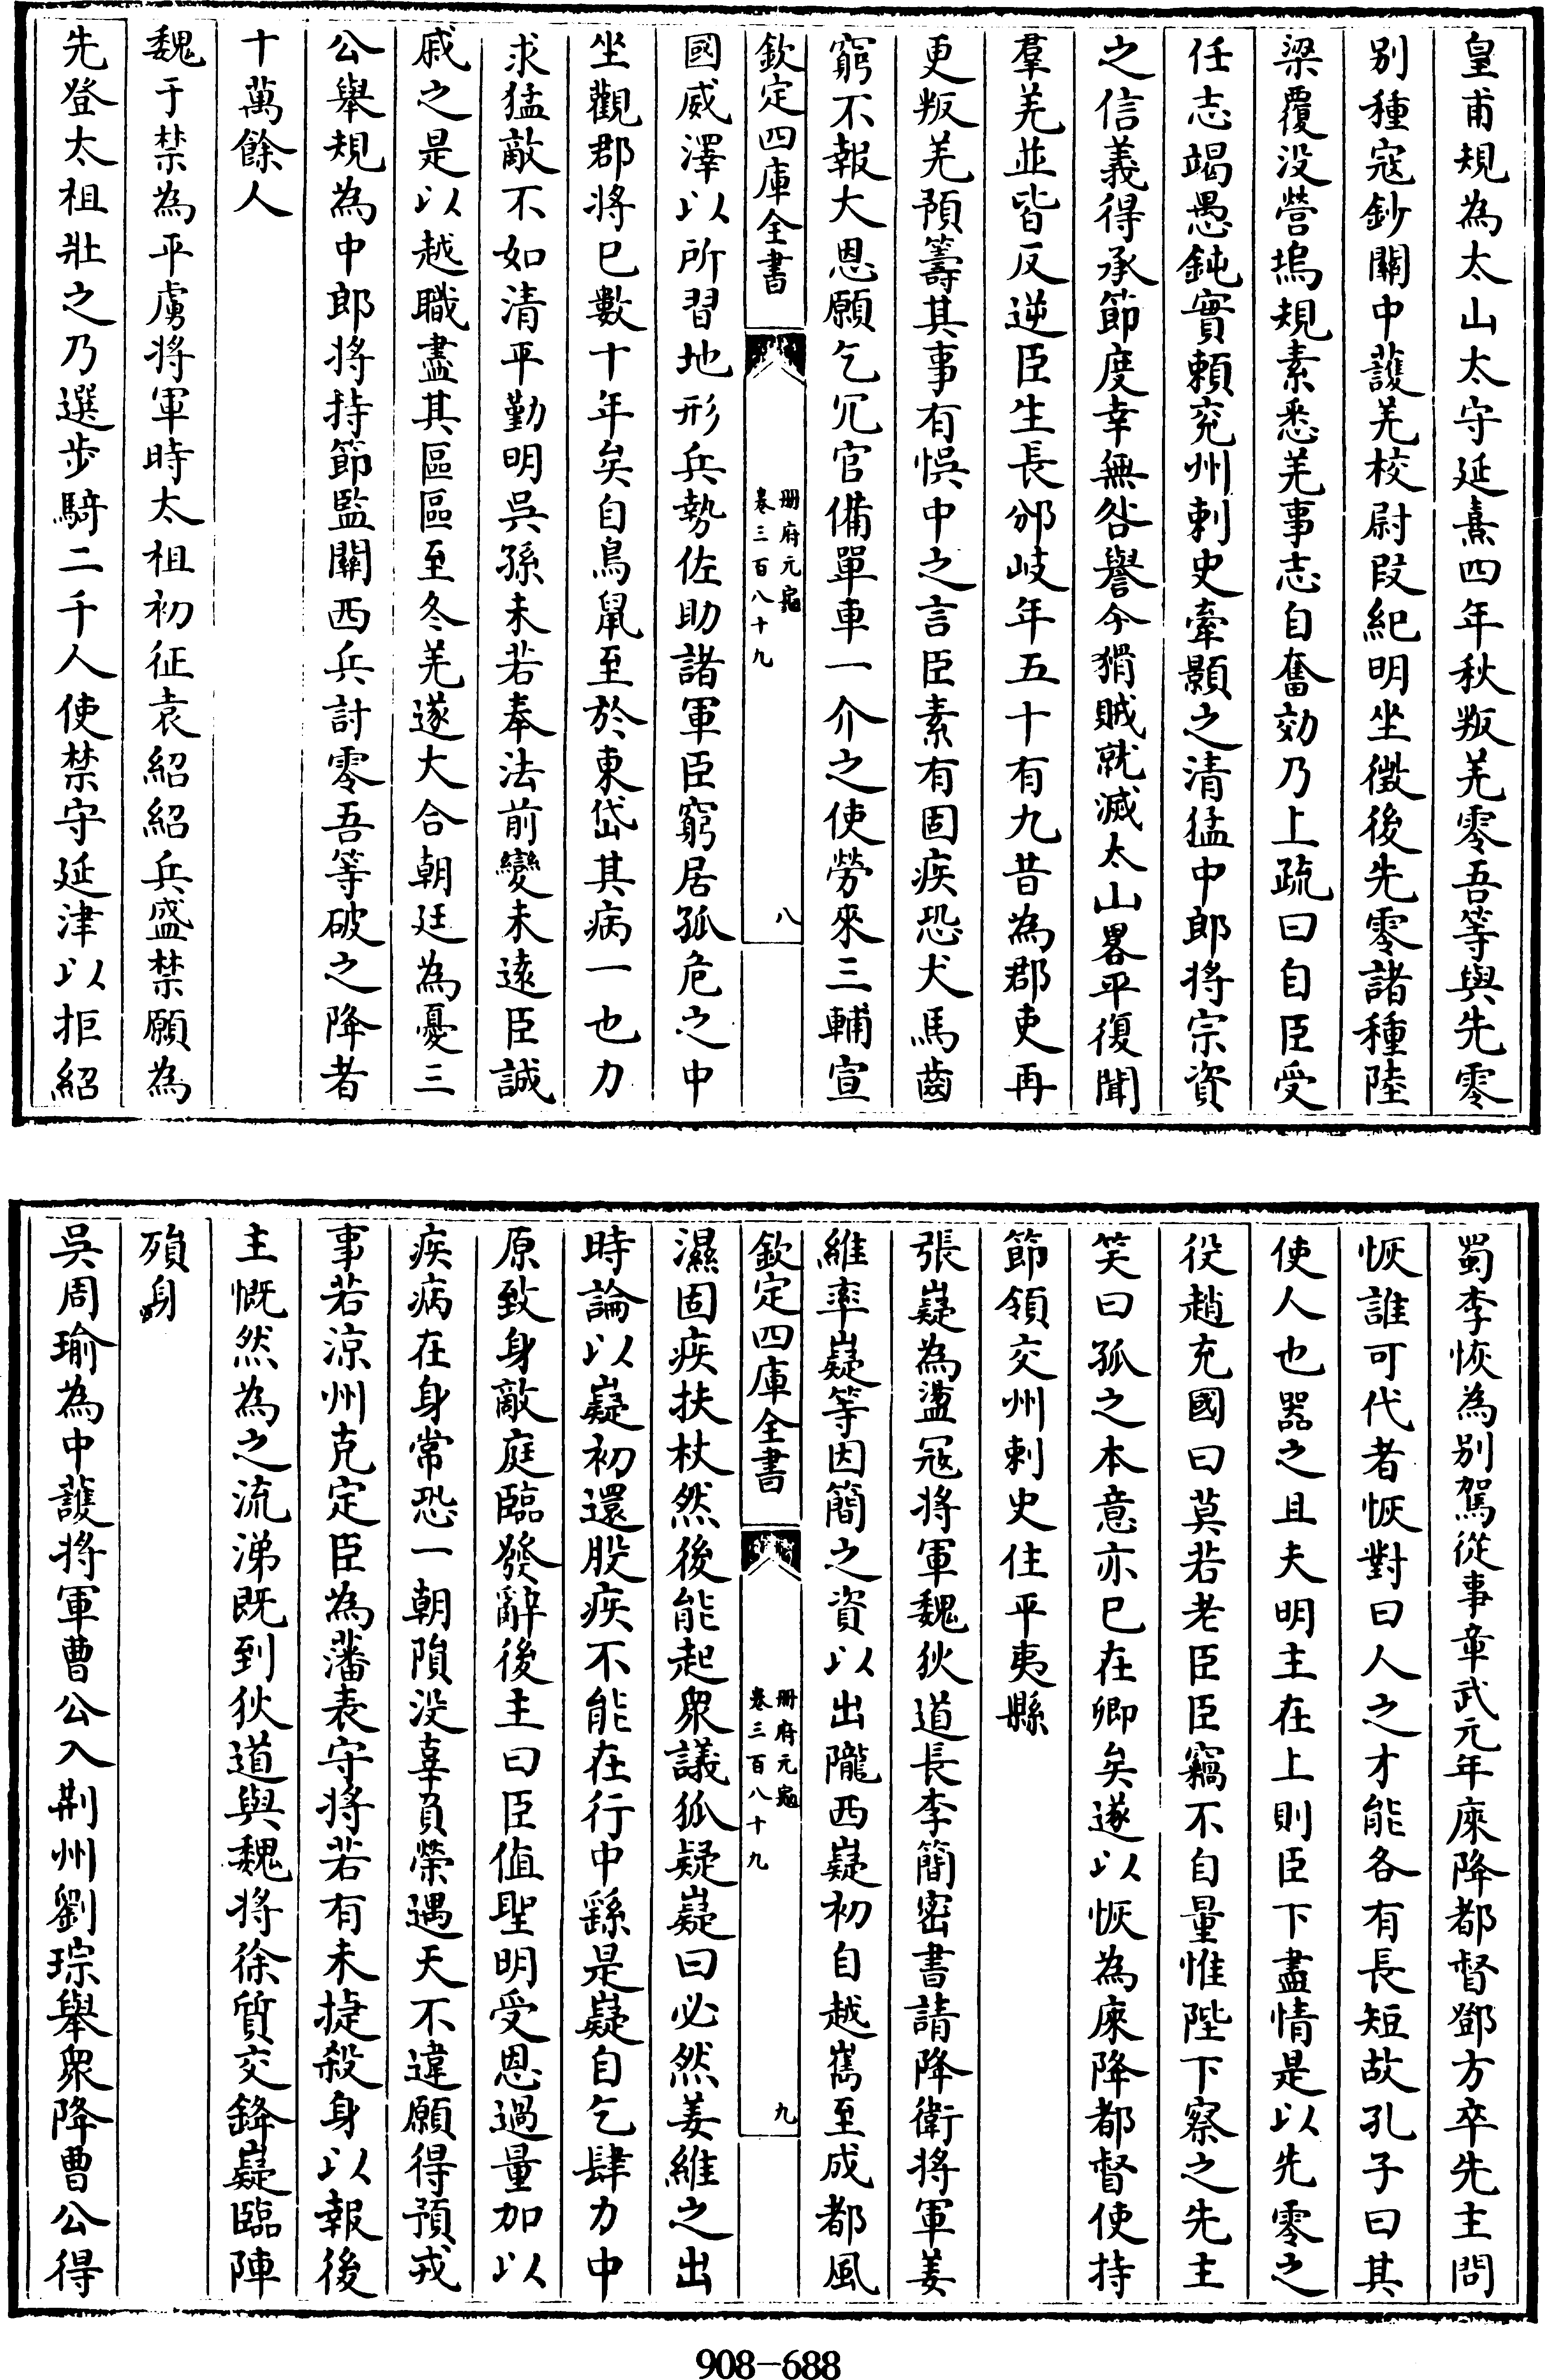 皇甫規為太山太守延熹四年秋叛羌零吾等與先零
别種寇鈔關中護羌校尉段紀明坐徵後先零諸種陸
梁覆没營塢規素悉羌事志自奮効乃上疏曰自臣受
任志竭愚鈍實賴兖州刺史牽顥之清猛中郎將宗資
之信義得承節度幸無咎譽今猾賊就滅太山畧平復聞
羣羌並皆反逆臣生長邠岐年五十有九昔為郡吏再
更叛羌預籌其事有悞中之言臣素有固疾恐犬馬齒
窮不報大恩願乞冗官備單車一介之使勞來三輔宣
欽定四庫全書
册府元龜
卷三百八十九
八
國威澤以所習地形兵勢佐助諸軍臣窮居孤危之中
坐觀郡將巳數十年矣自鳥鼠至於東岱其病一也力
求猛敵不如清平勤明吳孫未若奉法前變未遠臣誠
戚之是以越職盡其區區至冬羌遂大合朝廷為憂三
公舉規為中郎將持節監關西兵討零吾等破之降者
十萬餘人
魏于禁為平虜將軍時太祖初征袁紹紹兵盛禁願為
先登太祖壯之乃選步騎二千人使禁守延津以拒紹
蜀李恢為别駕從事章武元年庲降都督鄧方卒先主問
恢誰可代者恢對曰人之才能各有長短故孔子曰其
使人也器之且夫明主在上則臣下盡情是以先零之
役趙充國曰莫若老臣臣竊不自量惟陛下察之先主
笑曰孤之本意亦巳在卿矣遂以恢為庲降都督使持
節領交州刺史住平夷縣
張嶷為盪寇將軍魏狄道長李簡密書請降衛將軍姜
維率嶷等因簡之資以出隴西嶷初自越嶲至成都風
欽定四庫全書
册府元龜
卷三百八十九
九
濕固疾扶杖然後能起衆議狐疑嶷曰必然姜維之出
時論以嶷初還股疾不能在行中繇是嶷自乞肆力中
原致身敵庭臨發辭後主曰臣值聖明受恩過量加以
疾病在身常恐一朝隕没辜負榮遇天不違願得預戎
事若涼州克定臣為藩表守將若有未捷殺身以報後
主慨然為之流涕既到狄道與魏將徐質交鋒嶷臨陣
殞身
吳周瑜為中護將軍曹公入荆州劉琮舉衆降曹公得
908-688